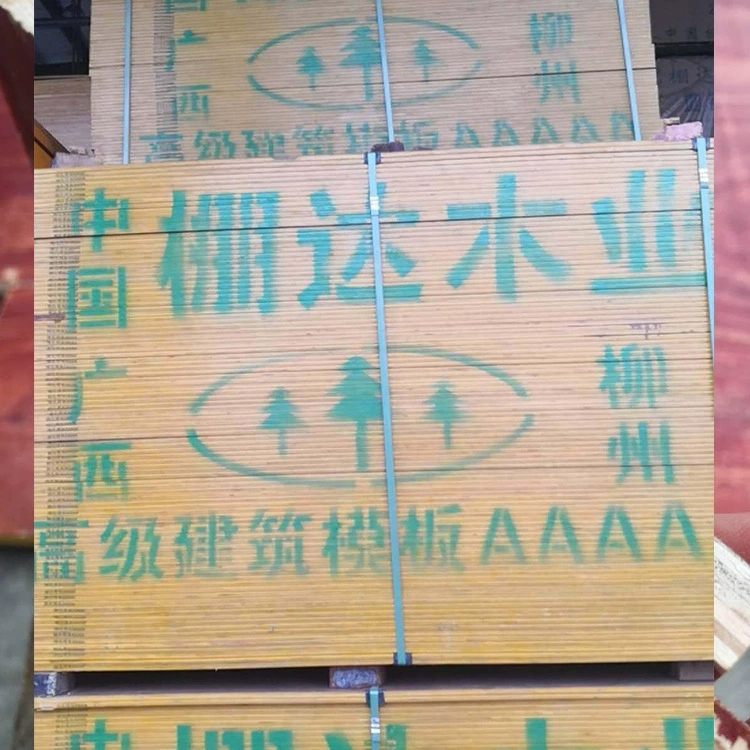 广西
柳州
高级建筑模板AAAAA
中国广西
棚达木业
柳州
高级建筑模板AAAA
中国
棚达